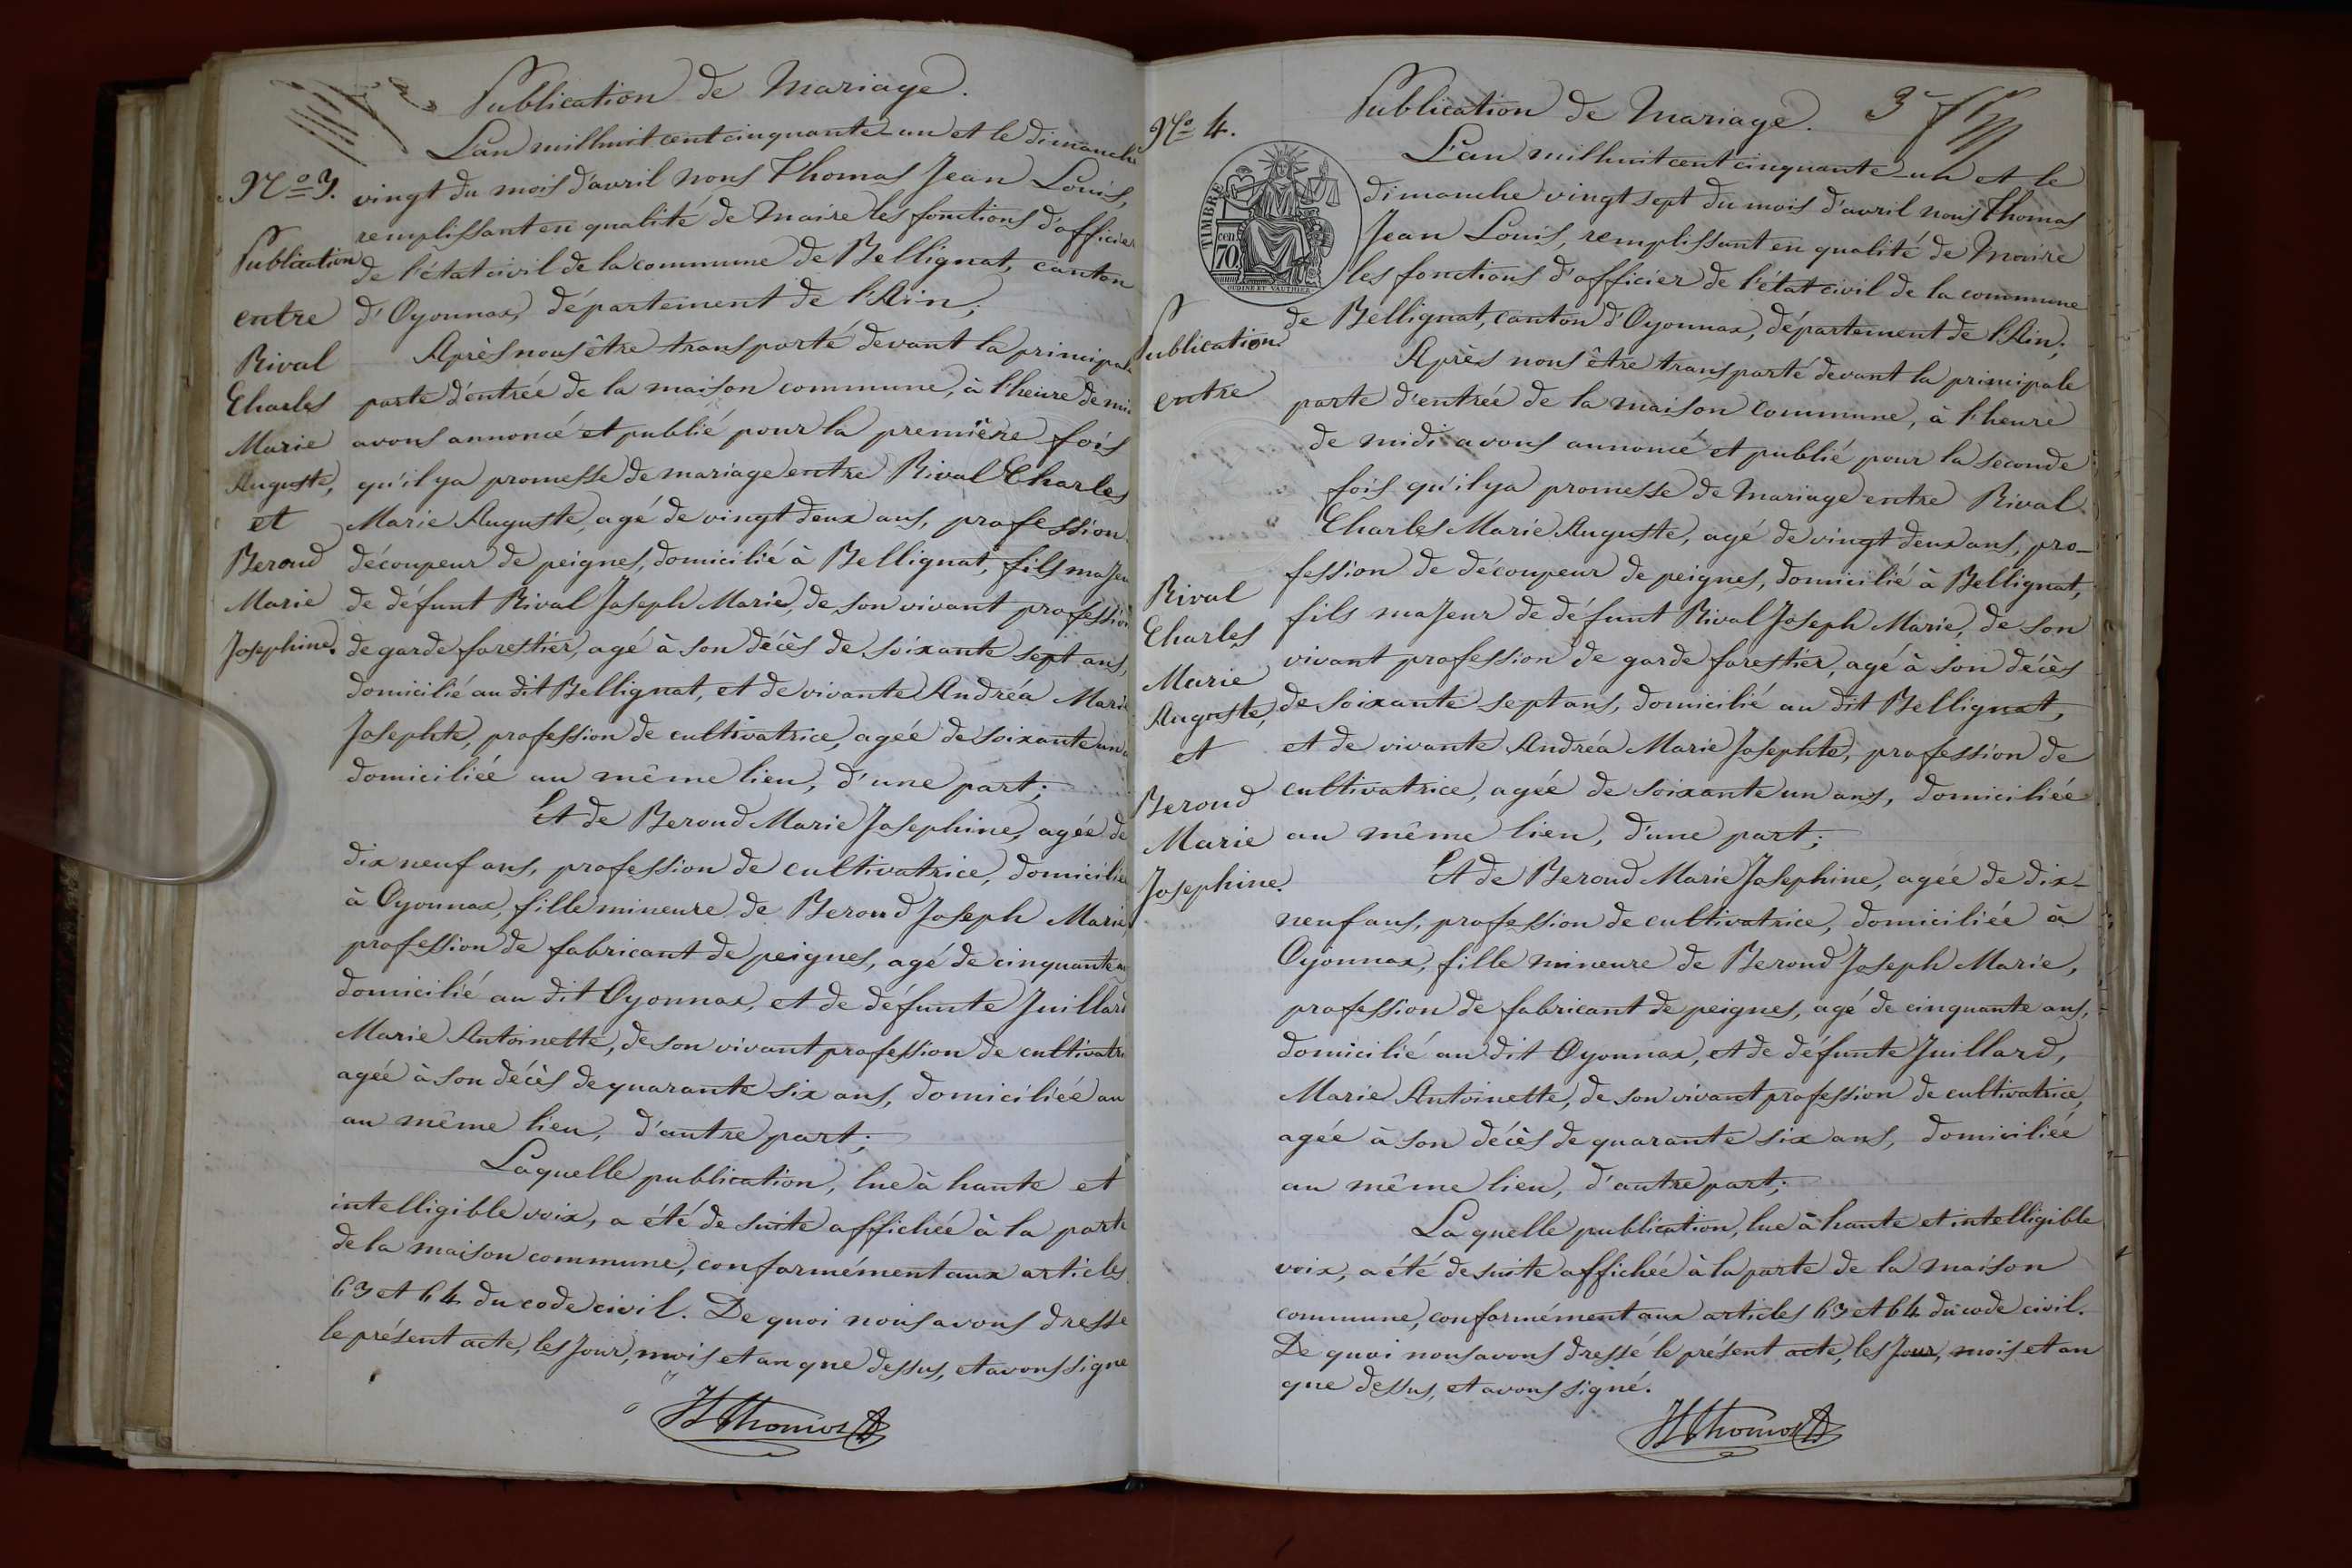 Publication de Mariage.
L'an mil huit cent cinquante-un et le dimanche
N.o 3. vingt du mois d'avril nous Thomas Jean Louis,
remplissant en qualité de Maire les fonctions d'officier
Publication de l'état civil de la commune de Bellignat, canton
entre d'Oyonnax, département de l'Ain;
Rival Après nous être transporté devant la principale
Charles porte d'entrée de la maison commune, à l'heure de mi
Marie avons annoncé et publié pour la première fois
Auguste, qu'il y a promesse de mariage entre Rival Charles
et Marie Auguste, agé de vingt deux ans, profession
Beroud découpeur de peignes, domicilié à Bellignat, fils majeu
Marie de défunt Rival Joseph Marie, de son vivant profession
Josephine. de garde forestier, agé à son décès de soixante sept ans,
domicilié au dit Bellignat, et de vivante Andréa Marie
Josephte, profession de cultivatrice, agée de soixante un a
domiciliée au même lieu, d'une part;
Et de Beroud Marie Josephine, agée de
dix neuf ans, profession de cultivatrice, domicilié
à Oyonnax, fille mineure de Beroud Joseph Marie,
profession de fabricant de peignes, agé de cinquante a
domicilié au dit Oyonnax, et de défunte Juillard
Marie Antoinette, de son vivant profession de cultivatri
agée à son décès de quarante six ans, domiciliée au
au même lieu, d'autre part;
Laquelle publication, lue à haute et
intelligible voix, a été de suite affichée à la porte
de la maison commune, conformément aux articles
63 et 64 du code civil. De quoi nous avons dressé
le présent acte, les jour, mois et an que dessus, et avons signé
JL Thomas
Publication de Mariage. 3
N.o 4.
L'an mil huit cent cinquante-un et le
dimanche vingt sept du mois d'avril nous Thomas
Jean Louis, remplissant en qualité de Maire
les fonctions d'officier de l'état civil de la commune
TIMBRE
cen
70
OUDINE ET VAUTHIER
de Bellignat, canton d'Oyonnax, département de l'Ain;
Publication Après nous être transporté devant la principale
entre porte d'entrée de la maison commune, à l'heure
de midi avons annoncé et publié pour la seconde
fois qu'il y a promesse de mariage entre Rival
Charles Marie Auguste, agé de vingt deux ans, pro-
fession de découpeur de peignes, domicilié à Bellignat,
Rival fils majeur de défunt Rival Joseph Marie, de son
Charles vivant profession de garde forestier, agé à son décès
Marie
Auguste, de soixante sept ans, domicilié au dit Bellignat,
et et de vivante Andréa Marie Josephte, profession de
Beroud cultivatrice, agée de soixante un ans, domiciliée
Marie au même lieu, d'une part;
Josephine. Et de Beroud Marie Josephine, agée de dix-
neuf ans, profession de cultivatrice, domiciliée à
Oyonnax, fille mineure de Beroud Joseph Marie,
profession de fabricant de peignes, agé de cinquante ans,
domicilié au dit Oyonnax, et de défunte Juillard,
Marie Antoinette, de son vivant profession de cultivatrice,
agée à son décès de quarante six ans, domiciliée
au même lieu, d'autre part;
Laquelle publication, lue à haute et intelligible
voix, a été de suite affichée à la porte de la maison
commune, conformément aux articles 63 et 64 du code civil.
De quoi nous avons dressé le présent acte, les jour, mois et an
que dessus, et avons signé.
JL Thomas